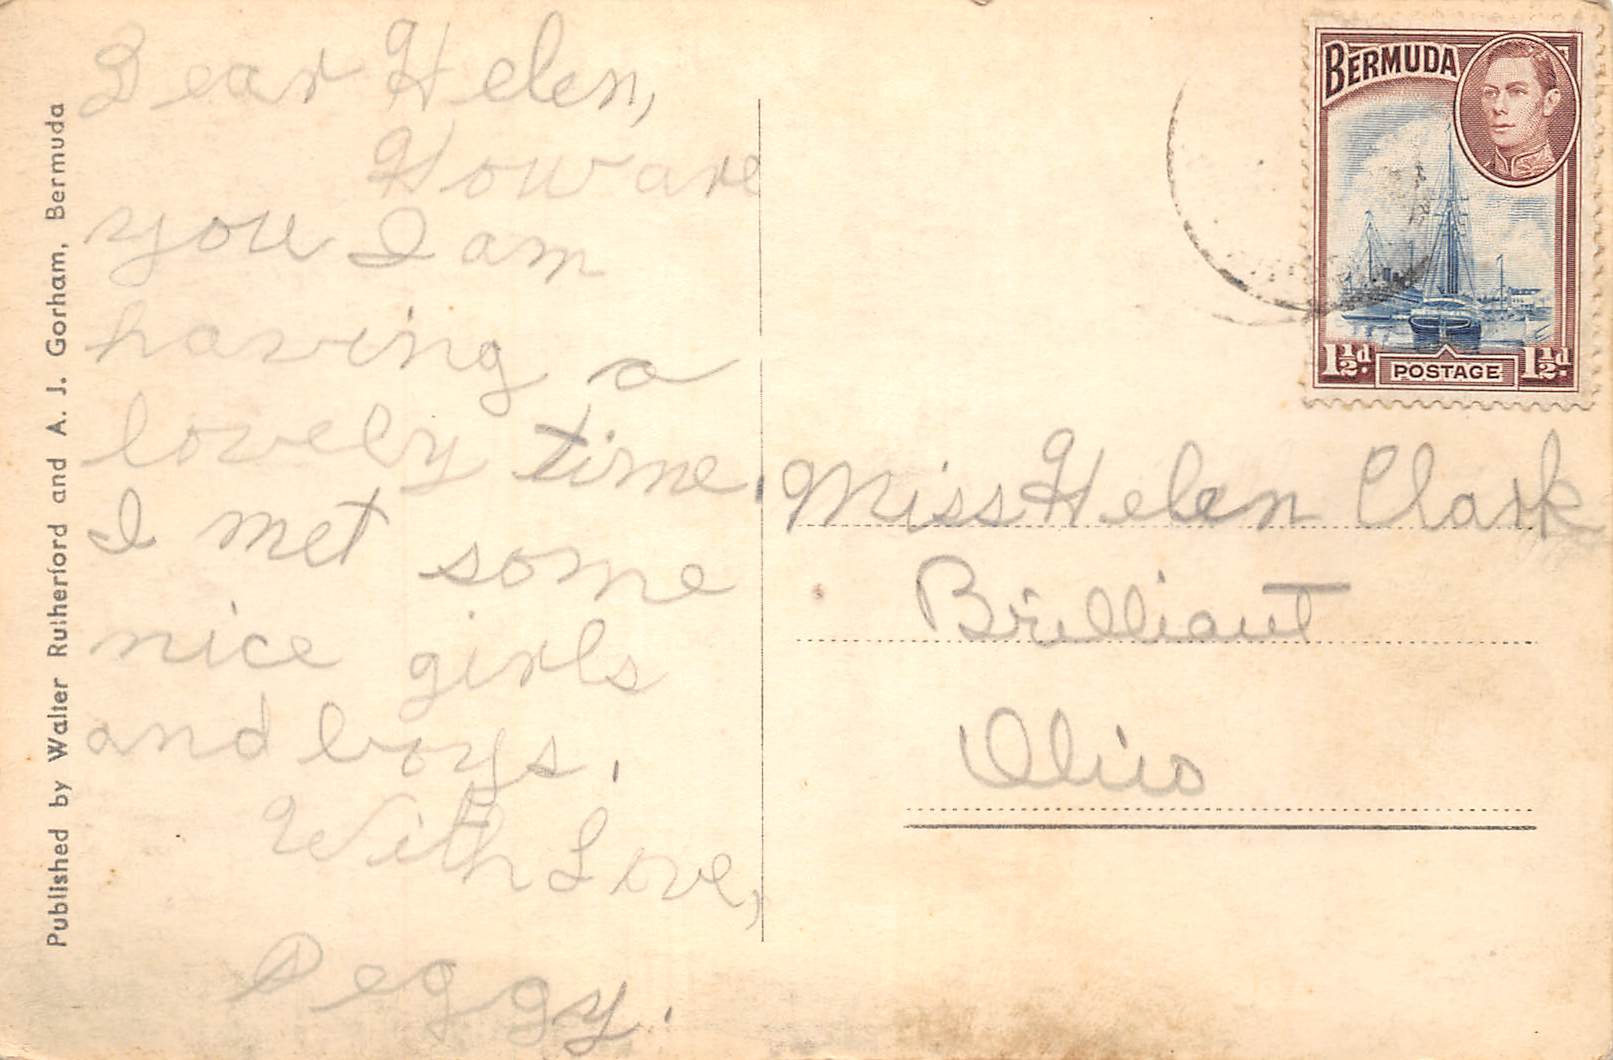 Dear Helen,
How are
you I am
having a
lovely time.
I met some
nice girls
and boys.
With Love,
Peggy.
Published by Walter Rutherford and A. J. Gorham, Bermuda
BERMUDA
1½d.
POSTAGE
1½d.
Miss Helen Clark
Brilliant
Ohio